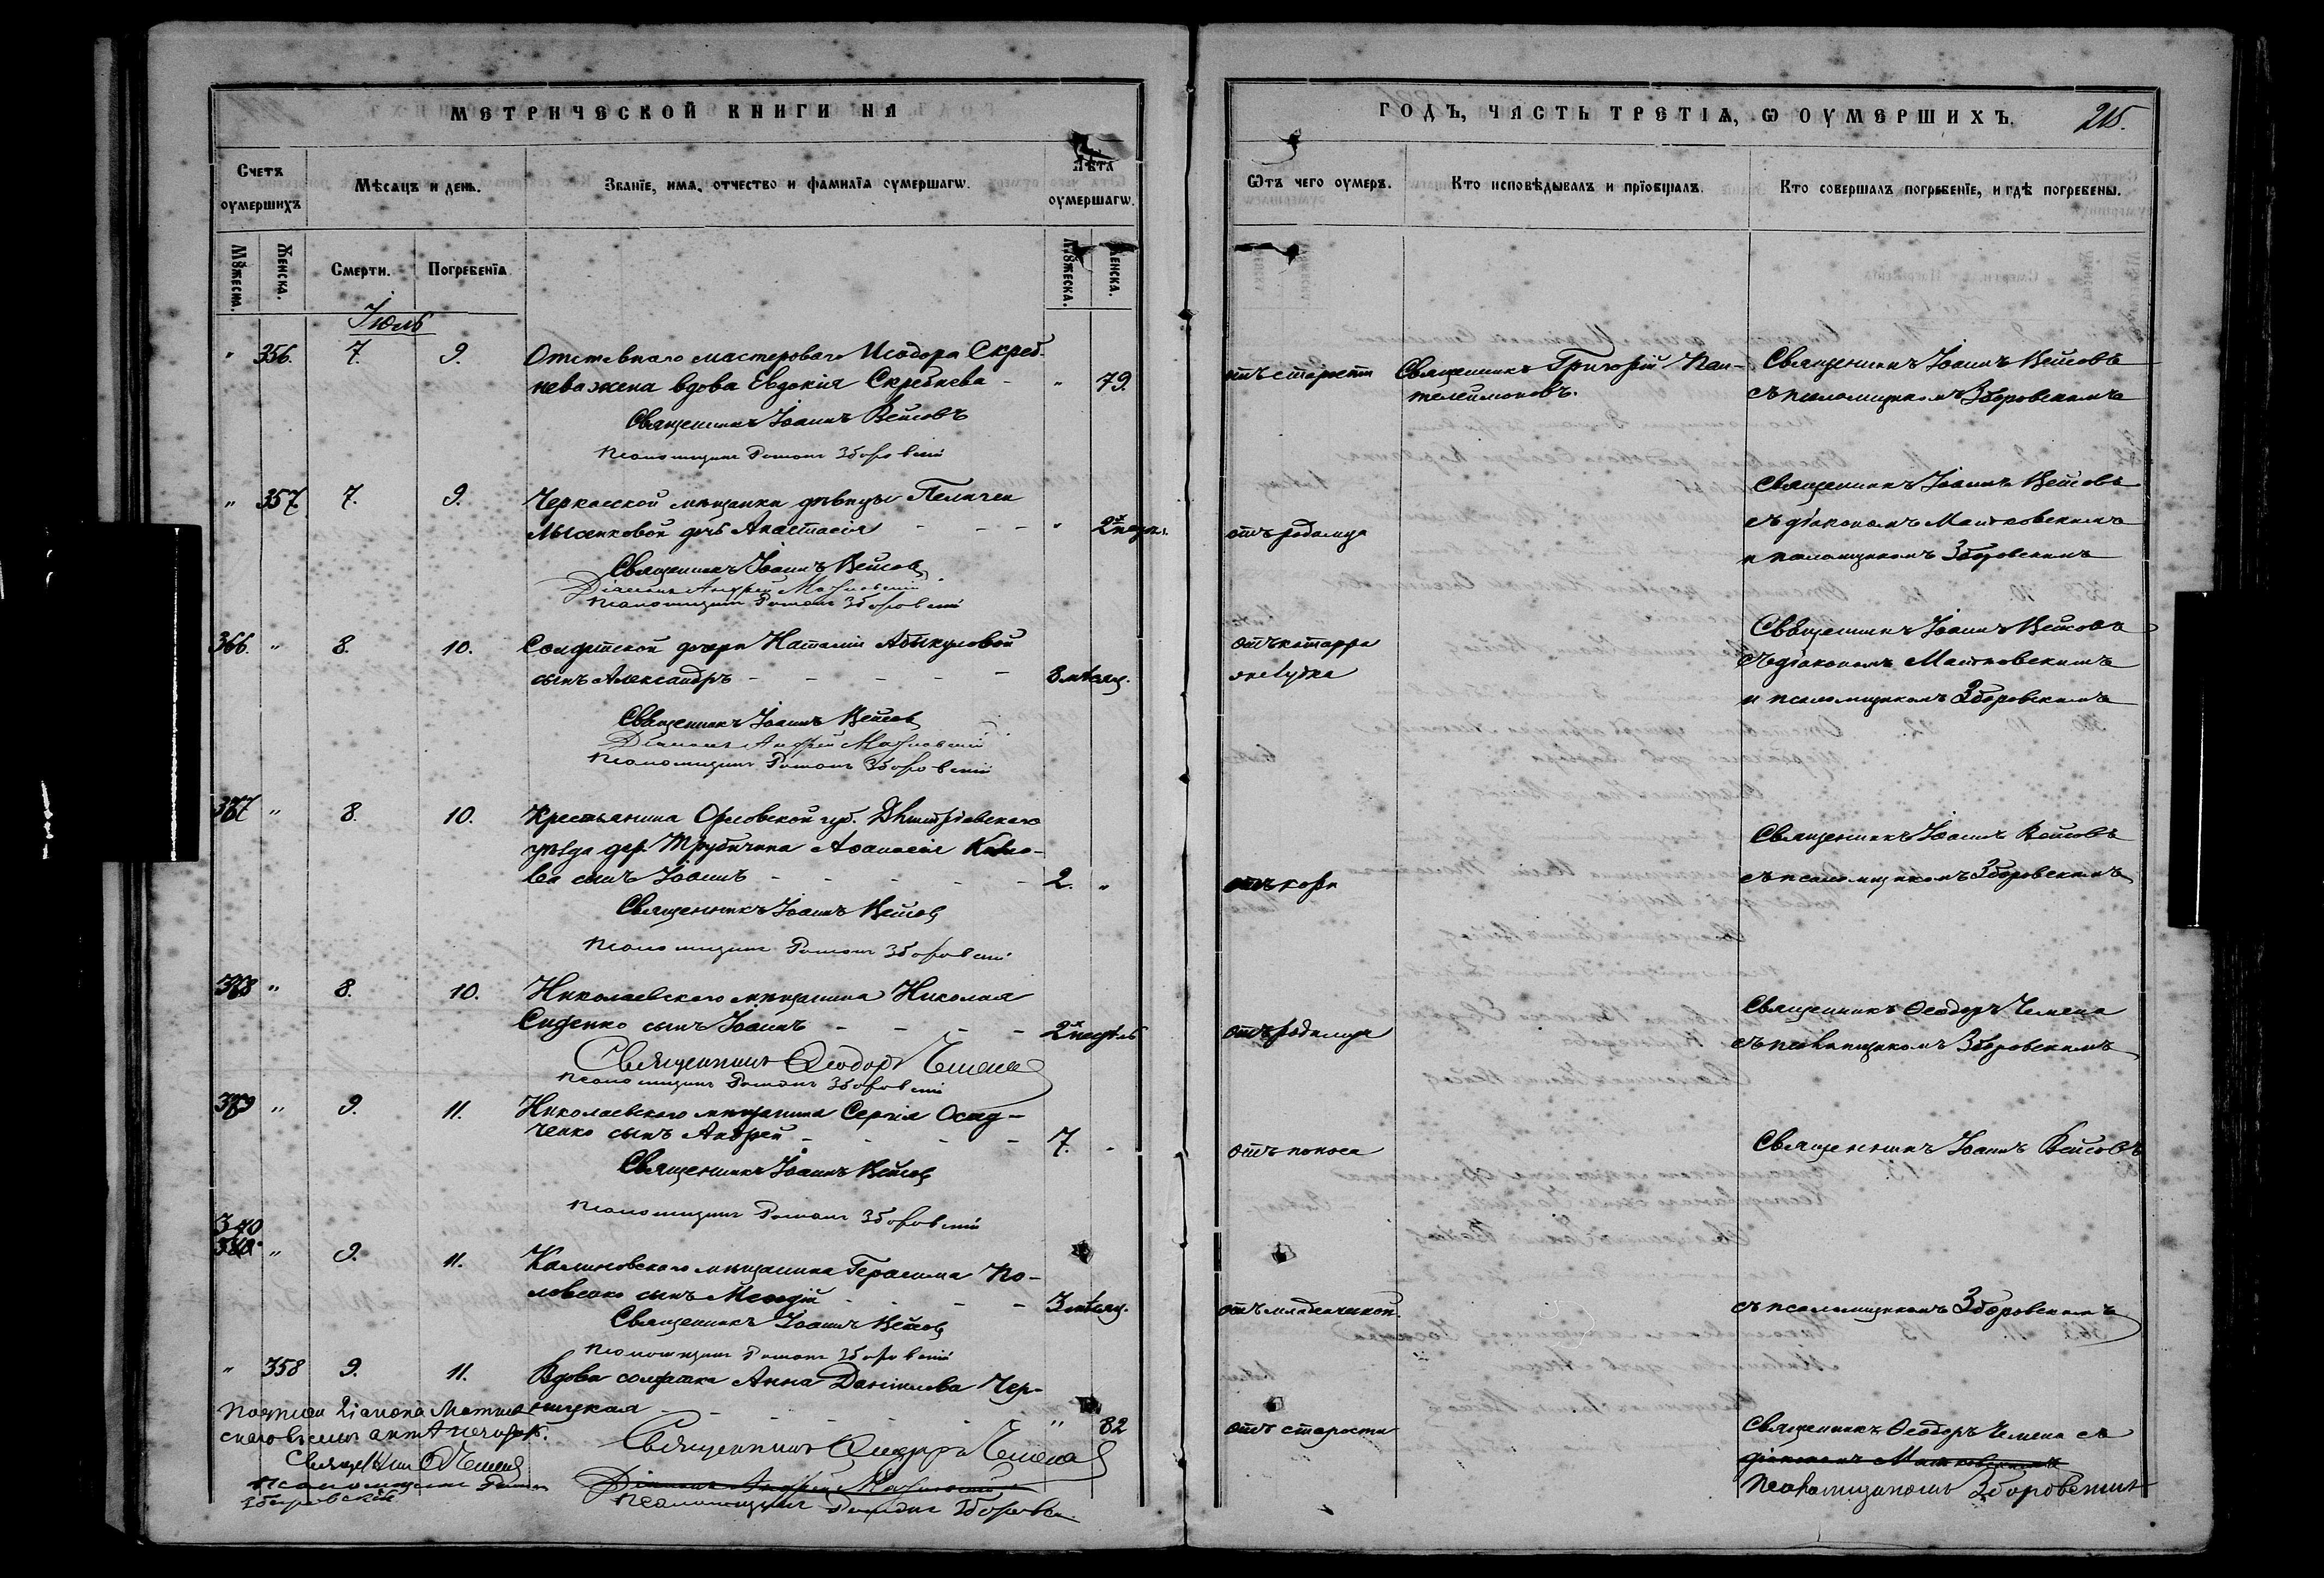 МЕТРИЧЕСКОЙ КНИГИ НА
Счетъ оумершихъ
Мѣсяцъ и день.
Званїе, имя, отчество и фамилїя оумершагѡ.
Лѣта оумершагѡ.
Мꙋжеска.
Женска.
Смерти.
Погребенїя
Мꙋжеска.
Женска.
Іюль
" 356. 7. 9. Отставнаго мастероваго Исидора Скреб-
нева жена вдова Евдокія Скребнева - " 79.
Священникъ Іоаннъ Вейсовъ
Псаломщикъ Романъ Зборовскій
" 357. 7. 9. Черкасской мѣщанки дѣвицы Пелагеи
Лысенковой дочь Анастасія - - - " 2 недѣл.
Священникъ Іоаннъ Вейсовъ
Діаконъ Андрей
Псаломщикъ Романъ Зборовскій
366. " 8. 10. Солдатской дочери Наталіи
сынъ Александръ - - - - - 8 мѣсяц.
Священникъ Іоаннъ Вейсовъ
Діаконъ Андрей
Псаломщикъ Романъ Зборовскій
367 " 8. 10. Крестьянина Орловской губ. Дмитріевскаго
уѣзда дер. Трубичина Аѳанасія
ва сынъ Іоаннъ - - - - - 2. "
Священникъ Іоаннъ Вейсовъ
Псаломщикъ Романъ Зборовскій
368 " 8. 10. Николаевскаго мѣщанина Николая
Сиденко сынъ Іоаннъ - - - - 2 недѣль
Священникъ Ѳеодоръ Чемена
Псаломщикъ Романъ Зборовскій
369 " 9. 11. Николаевскаго мѣщанина Сергія Осад-
ченко сынъ Андрей - - - - 7. -
Священникъ Іоаннъ Вейсовъ
Псаломщикъ Романъ Зборовскій
340
" 9. 11. мѣщанина Герасима По-
ловенко сынъ Меѳодій - - - - 3 мѣсяц.
Священникъ Іоаннъ Вейсовъ
Псаломщикъ Романъ Зборовскій
" 358 9. 11. Вдова солдатка Анна Даніилова Чер-
ницкая - - - - - - " 82
Священникъ Ѳеодоръ Чемена
Діаконъ Андрей
Псаломщикъ Романъ Зборовскій
Подписи Діакона
скаго въ семъ актѣ
Священникъ Ѳ. Чемена
Псаломщикъ Романъ
Зборовскій
ГОДЪ, ЧАСТЬ ТРЕТІѦ, Ѡ ОУМЕРШИХЪ.
215.
Ѿтъ чего оумеръ.
Кто исповѣдывалъ и прїобщалъ.
Кто совершалъ погребенїе, и гдѣ погребены.
отъ старости Священникъ Григорій Пан- Священникъ Іоаннъ Вейсовъ
телеимоновъ. съ псаломщикомъ Зборовскимъ
Священникъ Іоаннъ Вейсовъ
отъ родимца съ діакономъ
и псаломщикомъ Зборовскимъ
отъ катарра Священникъ Іоаннъ Вейсовъ
желудка съ діакономъ
и псаломщикомъ Зборовскимъ
Священникъ Іоаннъ Вейсовъ
отъ кори съ псаломщикомъ Зборовскимъ
Священникъ Ѳеодоръ Чемена
отъ родимца съ псаломщикомъ Зборовскимъ
отъ поноса Священникъ Іоаннъ Вейсовъ
отъ младенческой. съ псаломщикомъ Зборовскимъ
отъ старости Священникъ Ѳеодоръ Чемена съ
діакономъ
псаломщикомъ Зборовскимъ